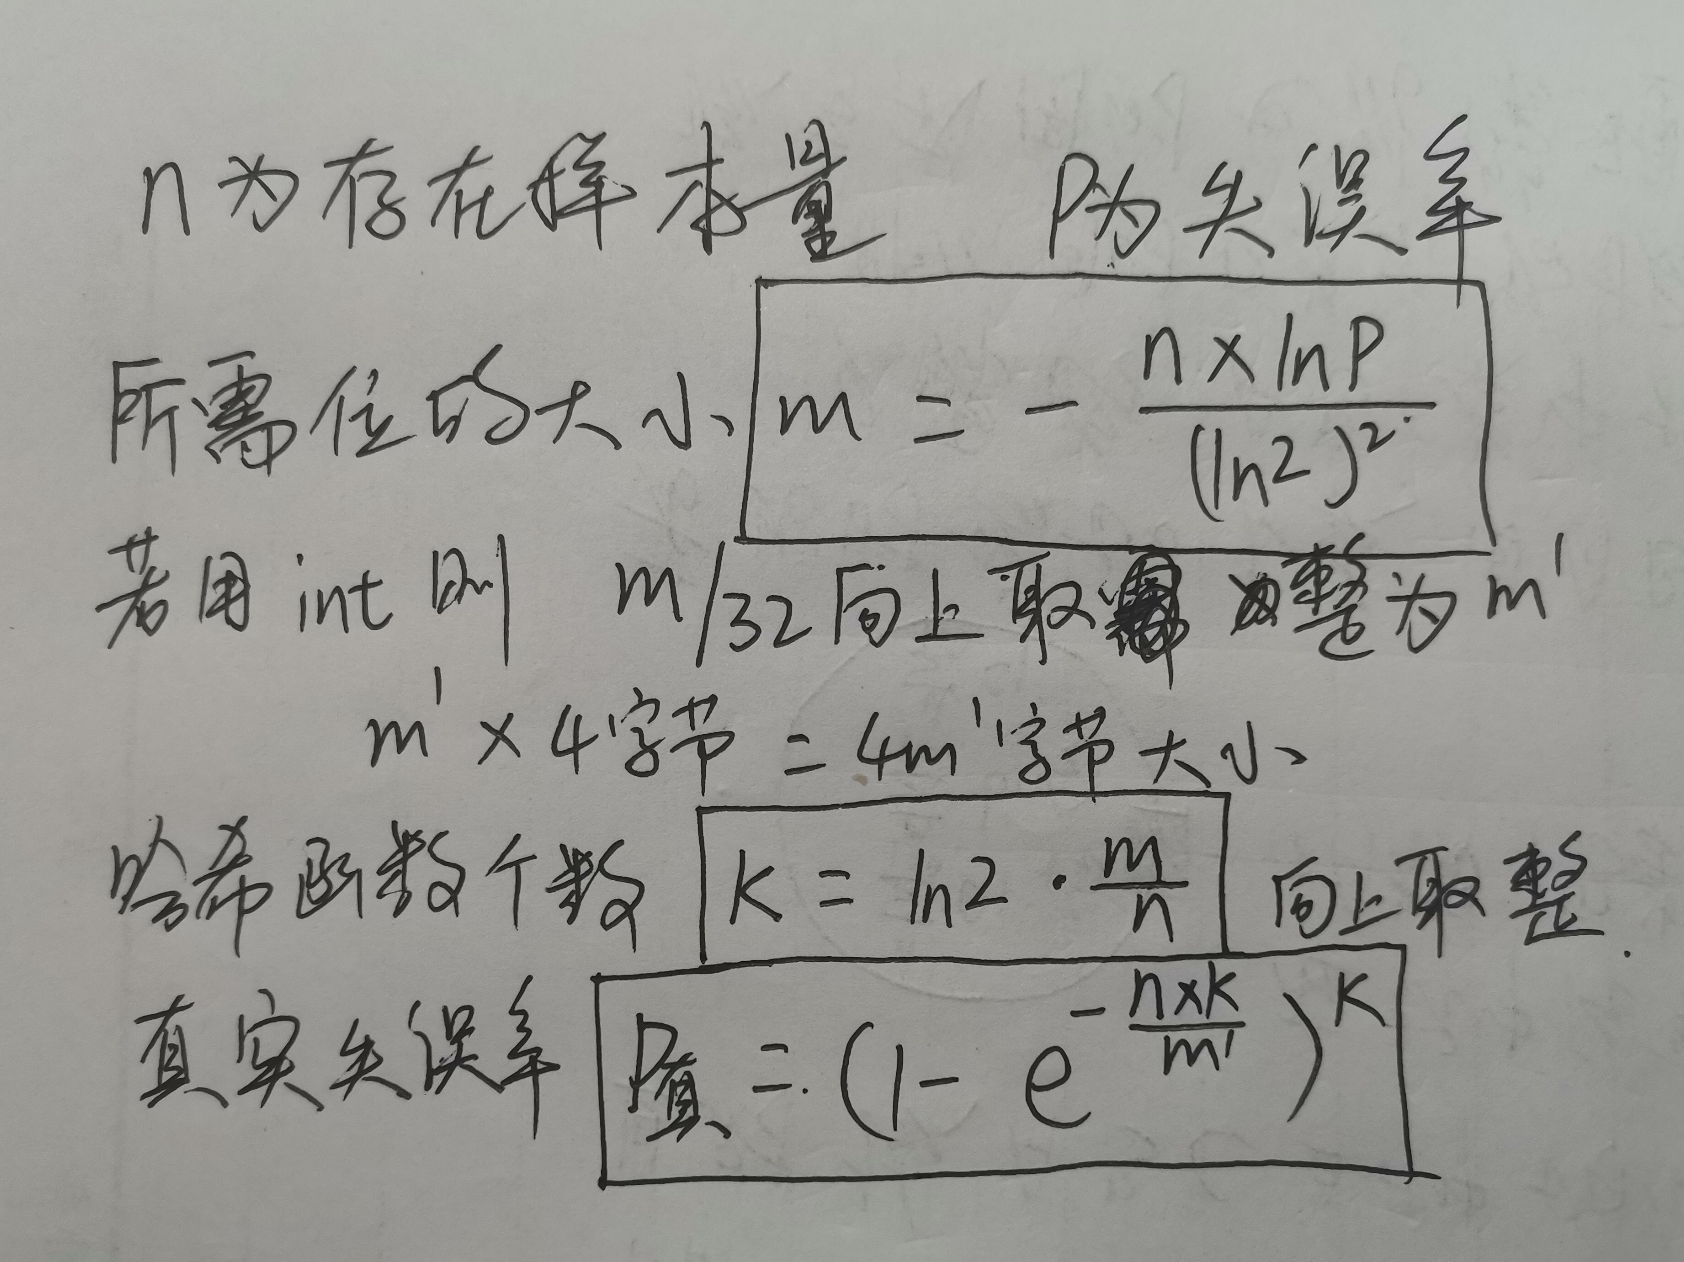 n为存在样本量 P为失误率
所需位的大小 m = - \frac{n×lnP}{(ln2)^2}
若用int则 m/32向上取整为m'
m'×4字节 = 4m'字节大小
哈希函数个数 K = ln2·\frac{m}{n} 向上取整.
真实失误率 P真 = (1-e^{-\frac{n×K}{m'}})^K